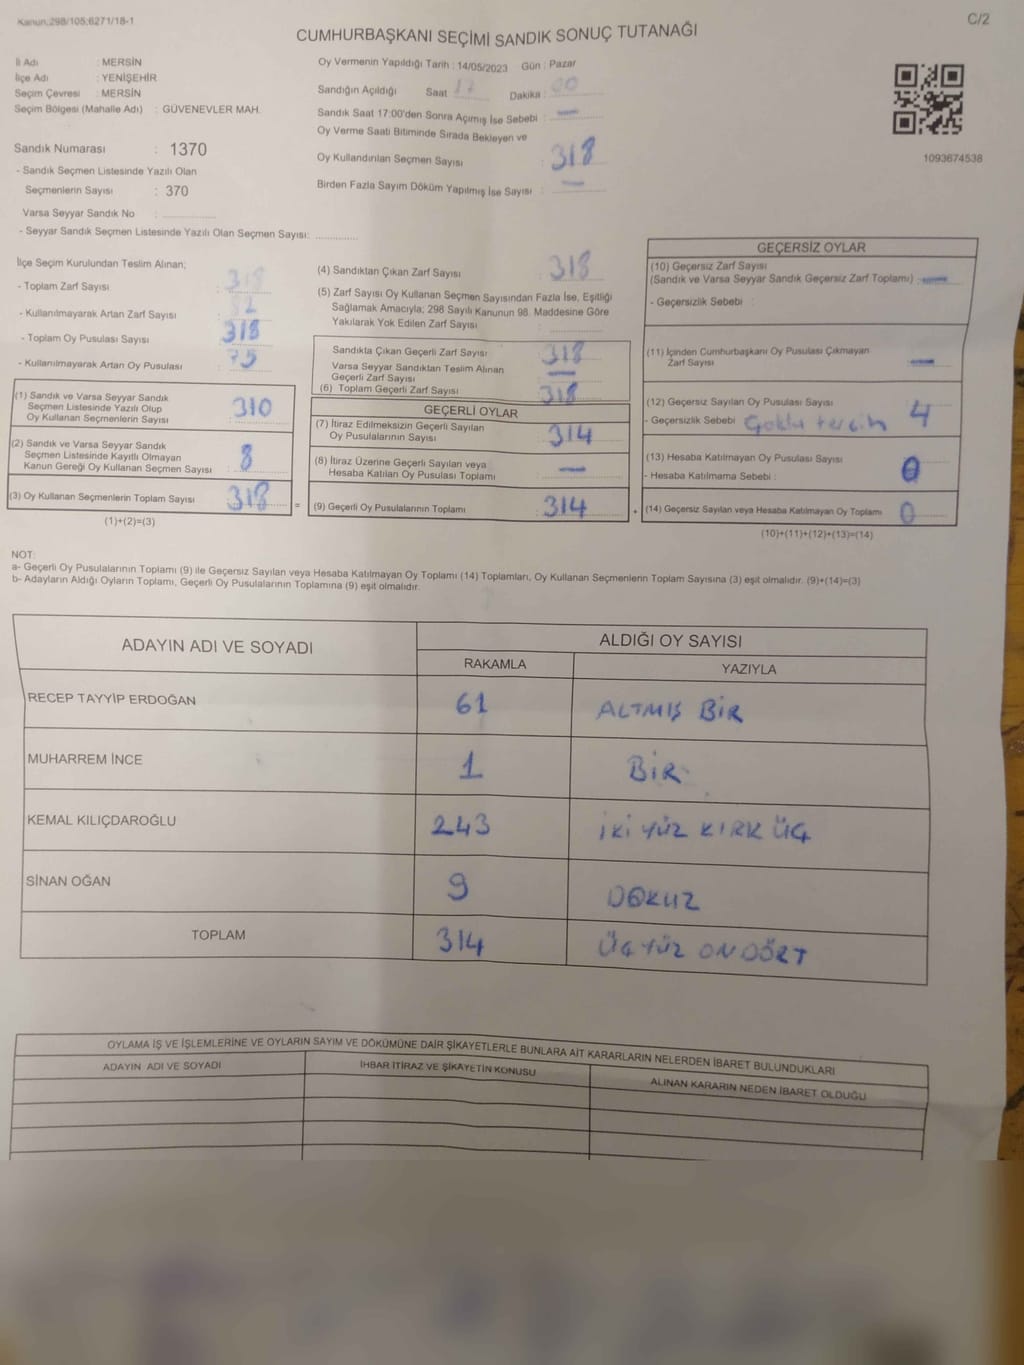 Kanun.298/105;6271/18-1
C/2
CUMHURBAŞKANI SEÇİMİ SANDIK SONUÇ TUTANAĞI
İl Adı : MERSİN
İlçe Adı : YENİŞEHİR
Seçim Çevresi : MERSİN
Seçim Bölgesi (Mahalle Adı) : GÜVENEVLER MAH.
Sandık Numarası : 1370
- Sandık Seçmen Listesinde Yazılı Olan
Seçmenlerin Sayısı : 370
Varsa Seyyar Sandık No :
- Seyyar Sandık Seçmen Listesinde Yazılı Olan Seçmen Sayısı:
Oy Vermenin Yapıldığı Tarih : 14/05/2023 Gün : Pazar
Sandığın Açıldığı Saat 17 Dakika : 00
Sandık Saat 17:00'den Sonra Açımış İse Sebebi : —
Oy Verme Saati Bitiminde Sırada Bekleyen ve
Oy Kullandırılan Seçmen Sayısı : 318
Birden Fazla Sayım Döküm Yapılmış İse Sayısı : —
1093674538
İlçe Seçim Kurulundan Teslim Alınan;
- Toplam Zarf Sayısı :
- Kullanılmayarak Artan Zarf Sayısı :
- Toplam Oy Pusulası Sayısı : 318
- Kullanılmayarak Artan Oy Pusulası : 75
(1) Sandık ve Varsa Seyyar Sandık
Seçmen Listesinde Yazılı Olup
Oy Kullanan Seçmenlerin Sayısı : 310
(2) Sandık ve Varsa Seyyar Sandık
Seçmen Listesinde Kayıtlı Olmayan
Kanun Gereği Oy Kullanan Seçmen Sayısı : 8
(3) Oy Kullanan Seçmenlerin Toplam Sayısı : 318 =
(1)+(2)=(3)
(4) Sandıktan Çıkan Zarf Sayısı : 318
(5) Zarf Sayısı Oy Kullanan Seçmen Sayısından Fazla İse, Eşitliği
Sağlamak Amacıyla; 298 Sayılı Kanunun 98. Maddesine Göre
Yakılarak Yok Edilen Zarf Sayısı :
Sandıkta Çıkan Geçerli Zarf Sayısı : 318
Varsa Seyyar Sandıktan Teslim Alınan
Geçerli Zarf Sayısı : —
(6) Toplam Geçerli Zarf Sayısı : 318
GEÇERLİ OYLAR
(7) İtiraz Edilmeksizin Geçerli Sayılan
Oy Pusulalarının Sayısı : 314
(8) İtiraz Üzerine Geçerli Sayılan veya
Hesaba Katılan Oy Pusulası Toplamı : —
(9) Geçerli Oy Pusulalarının Toplamı : 314 +
GEÇERSİZ OYLAR
(10) Geçersiz Zarf Sayısı
(Sandık ve Varsa Seyyar Sandık Geçersiz Zarf Toplamı) : —
- Geçersizlik Sebebi :
(11) İçinden Cumhurbaşkanı Oy Pusulası Çıkmayan
Zarf Sayısı —
(12) Geçersiz Sayılan Oy Pusulası Sayısı : 4
- Geçersizlik Sebebi Çoklu tercih
(13) Hesaba Katılmayan Oy Pusulası Sayısı : 0
- Hesaba Katılmama Sebebi :
(14) Geçersiz Sayılan veya Hesaba Katılmayan Oy Toplamı : 0
(10)+(11)+(12)+(13)=(14)
NOT:
a- Geçerli Oy Pusulalarının Toplamı (9) ile Geçersiz Sayılan veya Hesaba Katılmayan Oy Toplamı (14) Toplamları, Oy Kullanan Seçmenlerin Toplam Sayısına (3) eşit olmalıdır. (9)+(14)=(3)
b- Adayların Aldığı Oyların Toplamı, Geçerli Oy Pusulalarının Toplamına (9) eşit olmalıdır.
ADAYIN ADI VE SOYADI ALDIĞI OY SAYISI
RAKAMLA YAZIYLA
RECEP TAYYİP ERDOĞAN 61 ALTMIŞ BİR
MUHARREM İNCE 1 BİR
KEMAL KILIÇDAROĞLU 243 İKİ YÜZ KIRK ÜÇ
SİNAN OĞAN 9 DOKUZ
TOPLAM 314 ÜÇ YÜZ ON DÖRT
OYLAMA İŞ VE İŞLEMLERİNE VE OYLARIN SAYIM VE DÖKÜMÜNE DAİR ŞİKAYETLERLE BUNLARA AİT KARARLARIN NELERDEN İBARET BULUNDUKLARI
ADAYIN ADI VE SOYADI İHBAR İTİRAZ VE ŞİKAYETİN KONUSU ALINAN KARARIN NEDEN İBARET OLDUĞU